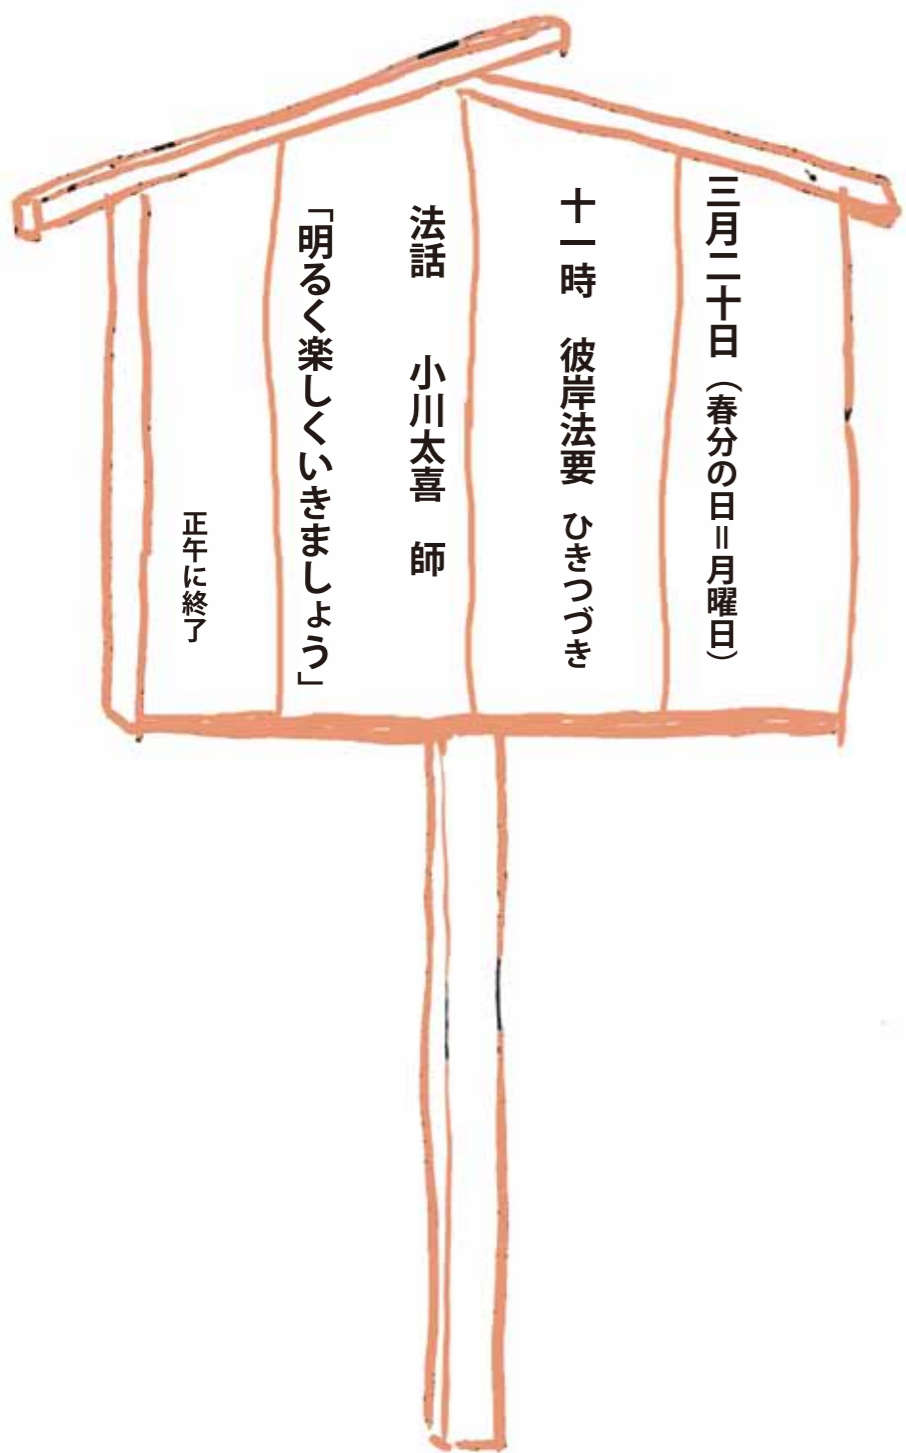 三月二十日（春分の日＝月曜日）
十一時　彼岸法要　ひきつづき
法話　　小川太喜　師
「明るく楽しくいきましょう」
正午に終了